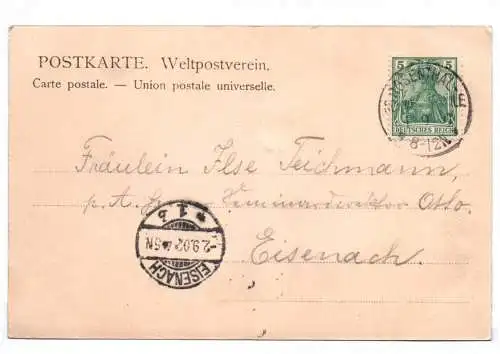 POSTKARTE. Weltpostverein.
Carte postale. — Union postale universelle.
5 5
DEUTSCHES REICH
8-12N
Fräulein Ilse Teichmann,
p. A. Seminardirektor Otto.
Eisenach.
* 1 b
-2.9.02 5-6N
EISENACH